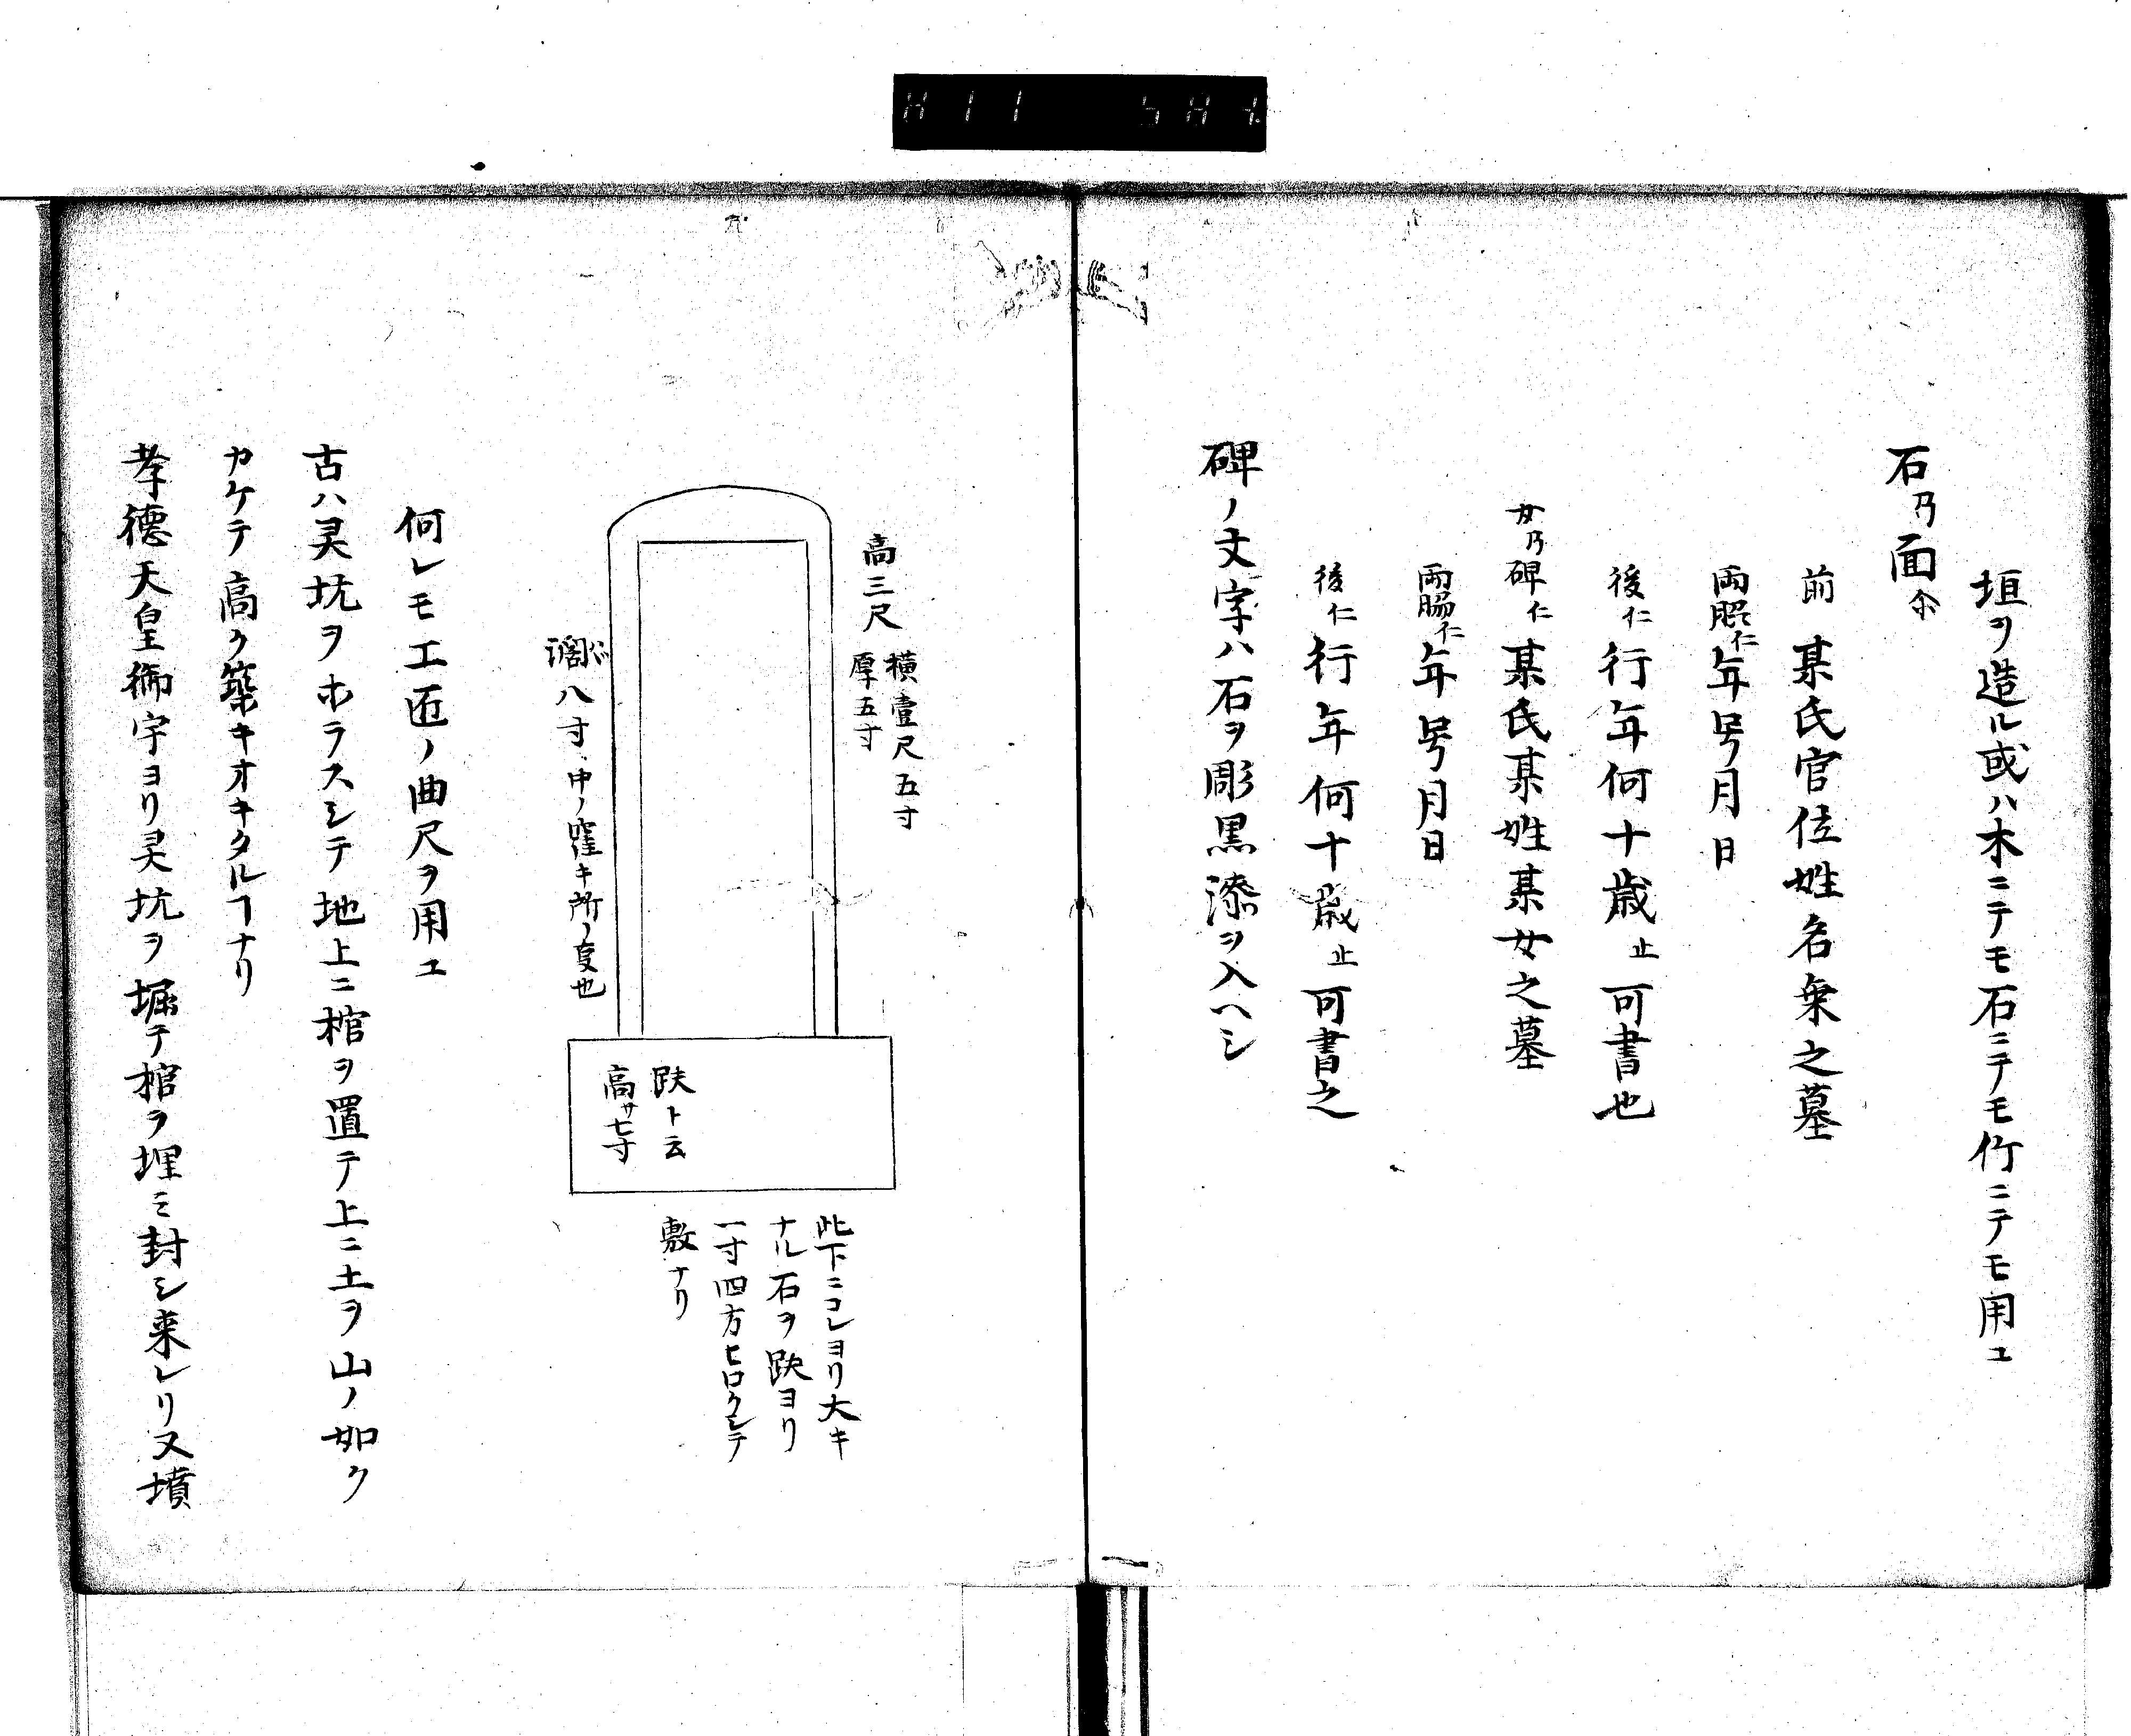 垣ヲ造ル或ハ木ニテモ石ニテモ竹ニテモ用ユ
石乃面尓
前 某氏官位姓名朶之墓
両脇仁年号月日
後仁行年何十歳止可書也
女乃碑仁某氏某姓某女之墓
両脇仁年号月日
後仁行年何十歳止可書之
碑ノ文字ハ石ヲ彫黒漆ヲ入ヘシ
高三尺
横壹尺五寸
厚五寸
濶八寸中ノ窪キ所ノ度也
趺ト云
高サ七寸
此下ニコレヨリ大キ
ナル石ヲ趺ヨリ
一寸四方ヒロクシテ
敷ナリ
何レモ工匠ノ曲尺ヲ用ユ
古ハ灵坑ヲホラスシテ地上ニ棺ヲ置テ上ニ土ヲ山ノ如ク
カケテ高ク築キオキタルヿナリ
孝徳天皇御宇ヨリ灵坑ヲ堀テ棺ヲ埋ミ封シ来レリ又墳